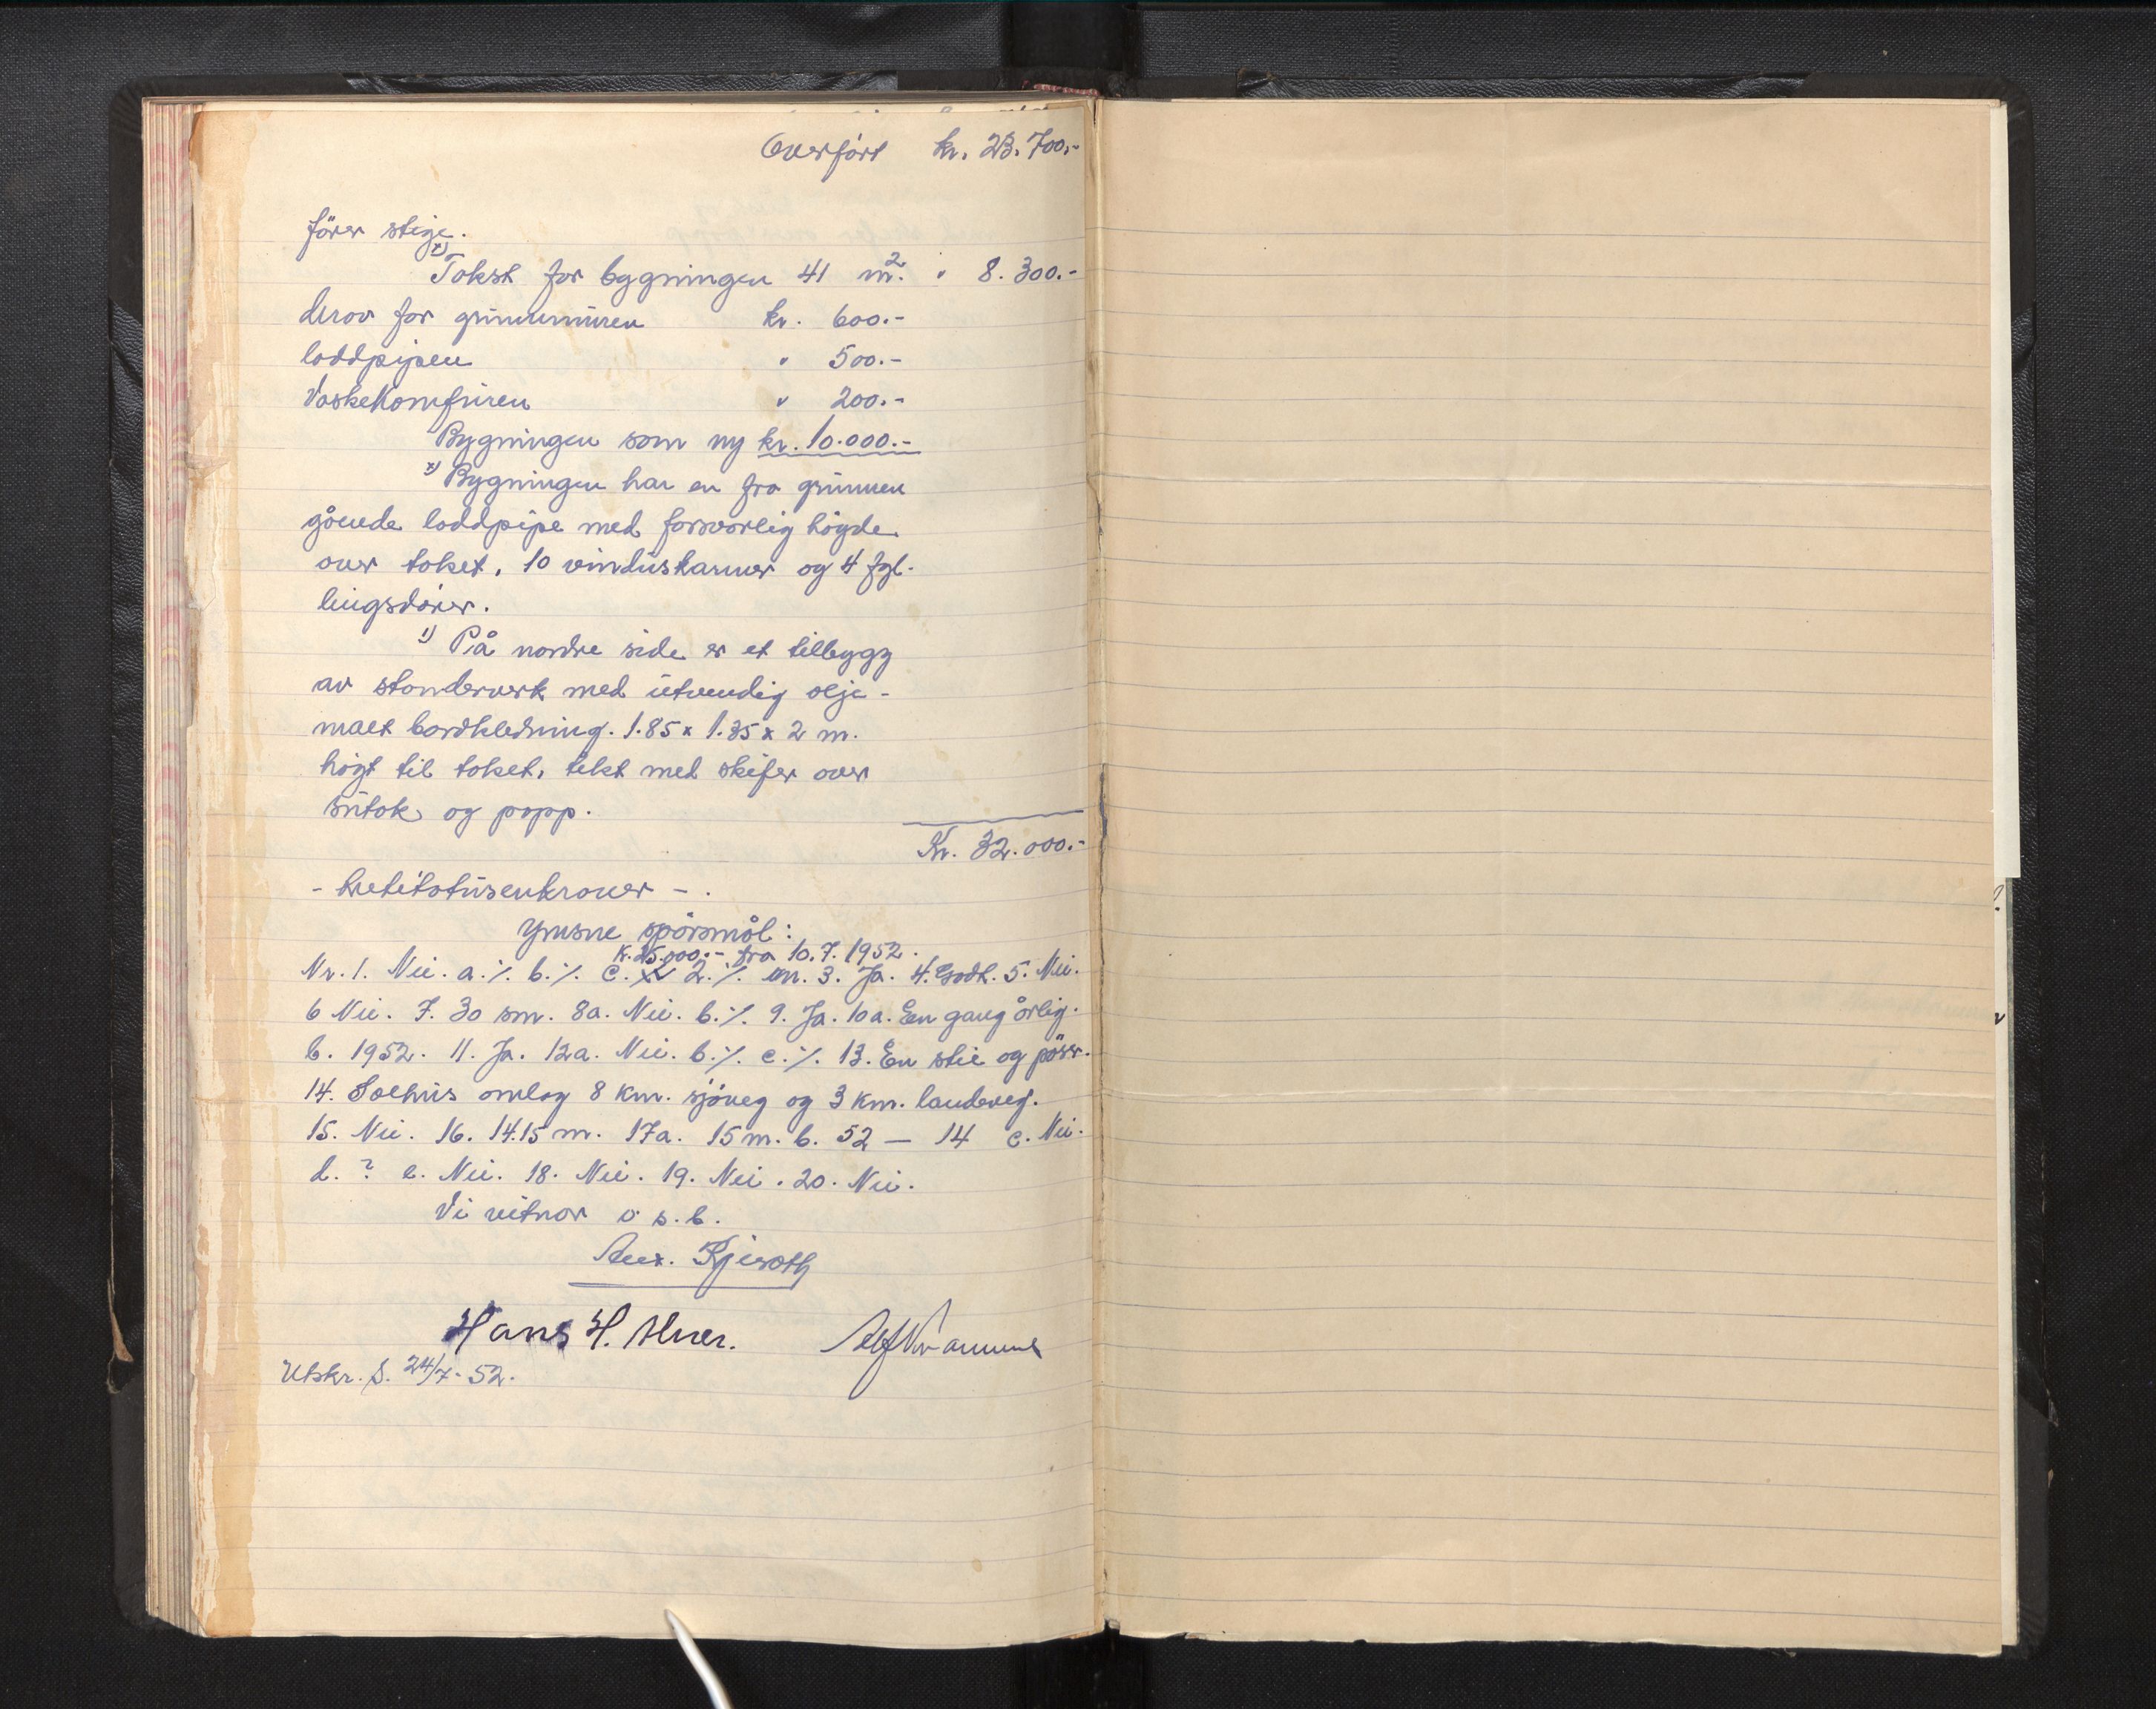 Overført kr. 23.700.-
fører stige.
x) Takst for bygningen 41 m². " 8.300.-
derav for grunnmuren kr. 600.-
loddpipen " 500.-
Vaskekomfuren " 200.-
Bygningen som ny kr. 10.000.-
x) Bygningen har en fra grunnen
gående loddpipe med forsvarlig høgde
over taket, 10 vinduskarmer og 4 fyl-
lingsdører.
1) På nordre side er et tilbygg
av standerverk med utvendig olje-
malt bordkledning. 1.85 x 1.35 x 2 m.
høgt til taket, tekt med skifer over
sutak og papp.
Kr. 32.000.-
- trettitotusenkroner - .
Ymsne spørsmål:
K. 25.000.- fra 10.7.1952.
Nr. 1. Nei. a. ./. b. ./. c. 2. ./. 3. Ja. 4. Godt. 5. Nei.
6 Nei. 7. 30 sm. 8a. Nei. b. ./. 9. Ja. 10a. En gang årlig.
b. 1952. 11. Ja. 12a. Nei. b. ./. c. ./. 13. En stie og pøser.
14. Solhus omlag 8 km. sjøveg og 3 km. landeveg.
15. Nei. 16. 14.15 m. 17a. 15 m. b. 52 — 14 c. Nei.
d. ? e. Nei. 18. Nei. 19. Nei. 20. Nei.
Vi vitnar o. s. b.
Hans H.
Utskr. S. 24/7-52.